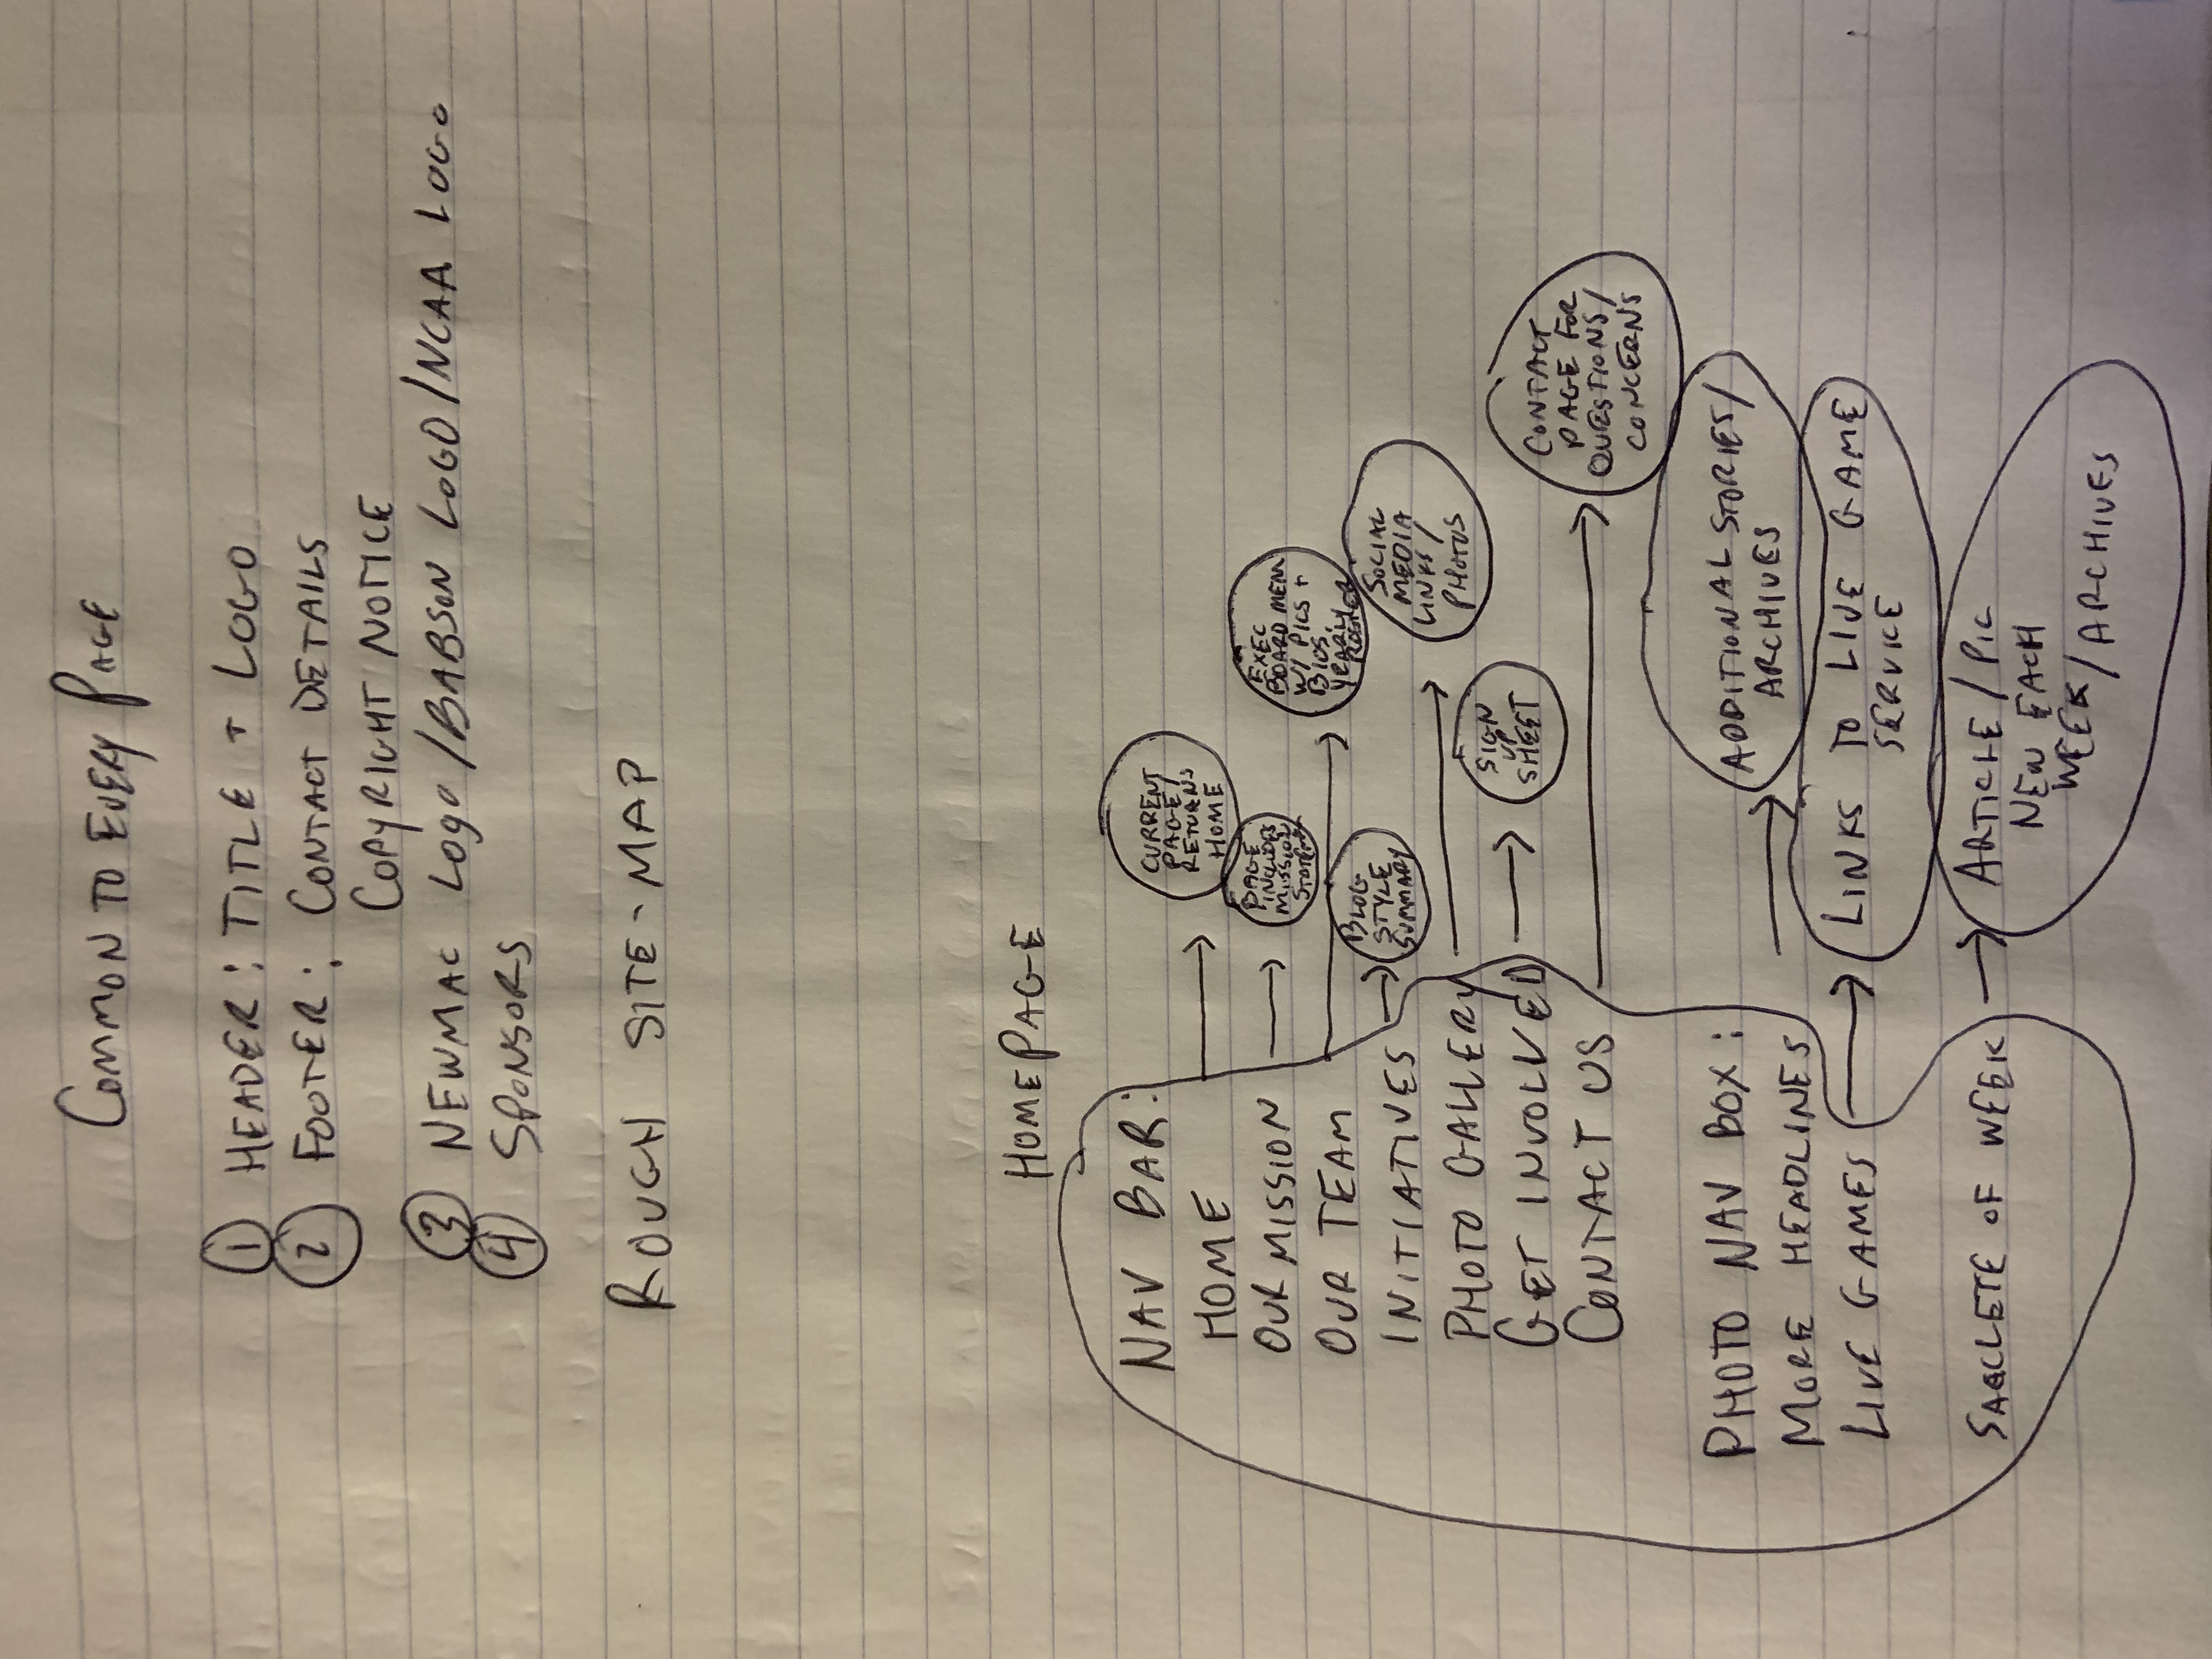 COMMON TO EVERY PAGE
① HEADER: TITLE + LOGO
② FOOTER: CONTACT DETAILS
COPYRIGHT NOTICE
③ NEWMAC LOGO/BABSON LOGO/NCAA LOGO
④ SPONSORS
ROUGH SITE-MAP
HOMEPAGE
NAV BAR:
HOME
CURRENT
PAGE/
RETURNS
HOME
OUR MISSION
PAGE
INCLUDES
MISSION
OUR TEAM
EXEC
BOARD MEM
W/ PICS +
BIOS,
YEARLY
ROSTER
INITIATIVES
BLOG
STYLE
SUMMARY
PHOTO GALLERY
SOCIAL
MEDIA
LINKS/
PHOTOS
GET INVOLVED
SIGN
UP
SHEET
CONTACT US
CONTACT
PAGE FOR
QUESTIONS/
CONCERNS
PHOTO NAV BOX:
MORE HEADLINES
ADDITIONAL STORIES/
ARCHIVES
LIVE GAMES
LINKS TO LIVE GAME
SERVICE
OF WEEK
ARTICLE/PIC
NEW EACH
WEEK/ARCHIVES